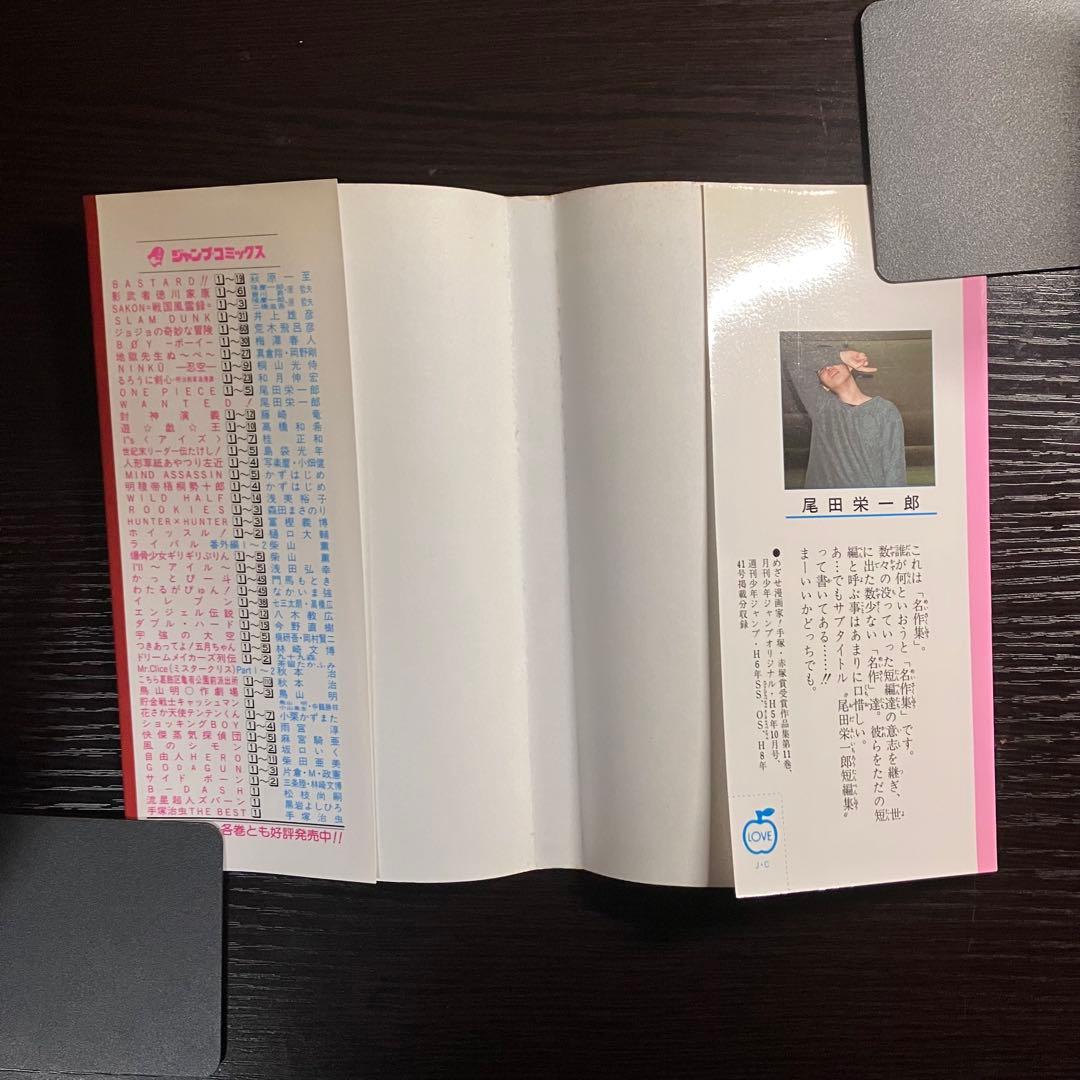 ジャンプコミックス
BASTARD!! 1〜19 萩原一至
影武者徳川家康 1〜6
SAKON=戦国風雲録= 1〜3
SLAM DUNK 1〜31 井上雄彦
ジョジョの奇妙な冒険 荒木飛呂彦
BØY ーボーイー 梅澤春人
地獄先生ぬ〜べ〜 1〜27 真倉翔・岡野剛
NINKŪ ―忍空― 1〜9 桐山光侍
るろうに剣心 1〜23 和月伸宏
ONE PIECE 1〜5 尾田栄一郎
WANTED! 尾田栄一郎
封神演義 1〜12 藤崎竜
遊☆戯☆王 1〜10 高橋和希
I"s〈アイズ〉 1〜7 桂正和
世紀末リーダー伝たけし! 1〜5 島袋光年
人形草紙あやつり左近 1〜4 写楽麿・小畑健
MIND ASSASSIN 1〜5 かずはじめ
明稜帝梧桐勢十郎 1〜4 かずはじめ
WILD HALF 1〜14 浅美裕子
ROOKIES 1〜3 森田まさのり
HUNTER×HUNTER 1〜3 冨樫義博
ホイッスル! 1〜2 樋口大輔
ライバル 番外編1〜2 柴山薫
爆骨少女ギリギリぷりん 1〜5 柴山薫
I'll 〜アイル〜 1〜5 浅田弘幸
かっとび一斗 門馬もとき
わたるがぴゅん! なかいま強
イレブン 七三太朗・高橋広
エンジェル伝説 八木教広
ダブル・ハード 今野直樹
宇強の大空 横研吾・岡村賢二
つきあってよ!五月ちゃん 1〜5 林崎文博
ドリームメイカーズ列伝 1〜2
Mr.Clice(ミスタークリス) Part1〜2 秋本治
こちら葛飾区亀有公園前派出所 秋本治
鳥山明○作劇場 1〜3 鳥山明
貯金戦士キャッシュマン 1
花さか天使テンテンくん 1〜7 小栗かずまた
ショッキングBOY 1〜4 雨宮淳
快傑蒸気探偵団 1〜5 麻宮騎亜
風のシモン 1〜2 坂口いく
自由人HERO 1〜11 柴田亜美
GODAGUN 1〜3 片倉・M・政憲
サイドボーン 1〜2 三条陸・林崎文博
B-DASH 1 松枝尚嗣
流星超人ズバーン 1 黒岩よしひろ
手塚治虫THE BEST 1 手塚治虫
各巻とも好評発売中!!
尾田栄一郎
これは「名作集」。
誰が何といおうと「名作集」です。
数々の没っていった短編達の意志を継ぎ、世
に出た数少ない「名作」達。彼らをただの短
編と呼ぶ事はあまりに口惜しい。
あ…でもサブタイトル〝尾田栄一郎短編集〟
って書いてある……!!
まーいいかどっちでも。
●めざせ漫画家!手塚・赤塚賞受賞作品集第11巻、
月刊少年ジャンプオリジナル・H5年10月号、
週刊少年ジャンプ・H6年SS、OS、H8年
41号掲載分収録
LOVE
J・C